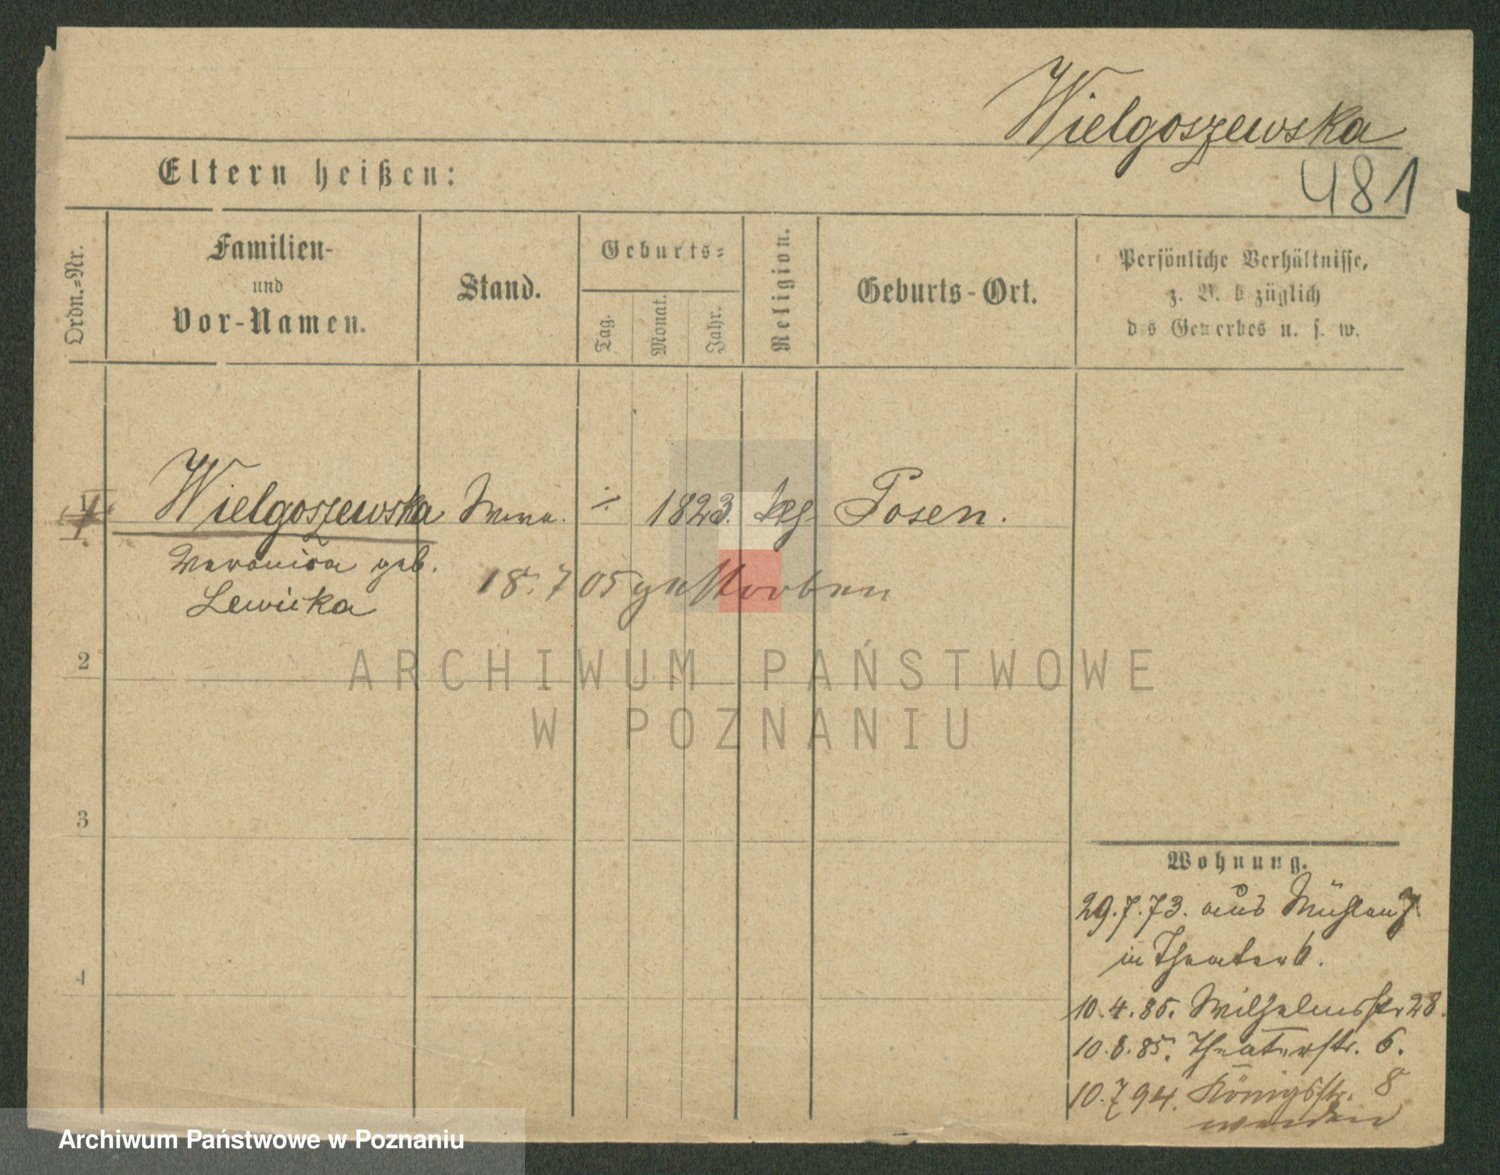 Wielgoszewska
481
Eltern heißen:
Ordn.-Nr.
Familien-
und
Vor-Namen.
Stand.
Geburts-
Tag.
Monat.
Jahr.
Religion.
Geburts-Ort.
Persönliche Verhältnisse,
z. B. bezüglich
des Gewerbes u. s. w.
1 Wielgoszewska ÷ 1823. Posen.
Veronica geb.
Lewicka
18.7 05 gestorben
2
3
4
Wohnung.
29.7.73. aus Mühlen 7
in Theater 6.
10.4.85. Wilhelmsstr 28.
10.6.85. Theaterstr. 6.
10.7.94. Königsstr. 8
ARCHIWUM PAŃSTWOWE
W POZNANIU
Archiwum Państwowe w Poznaniu